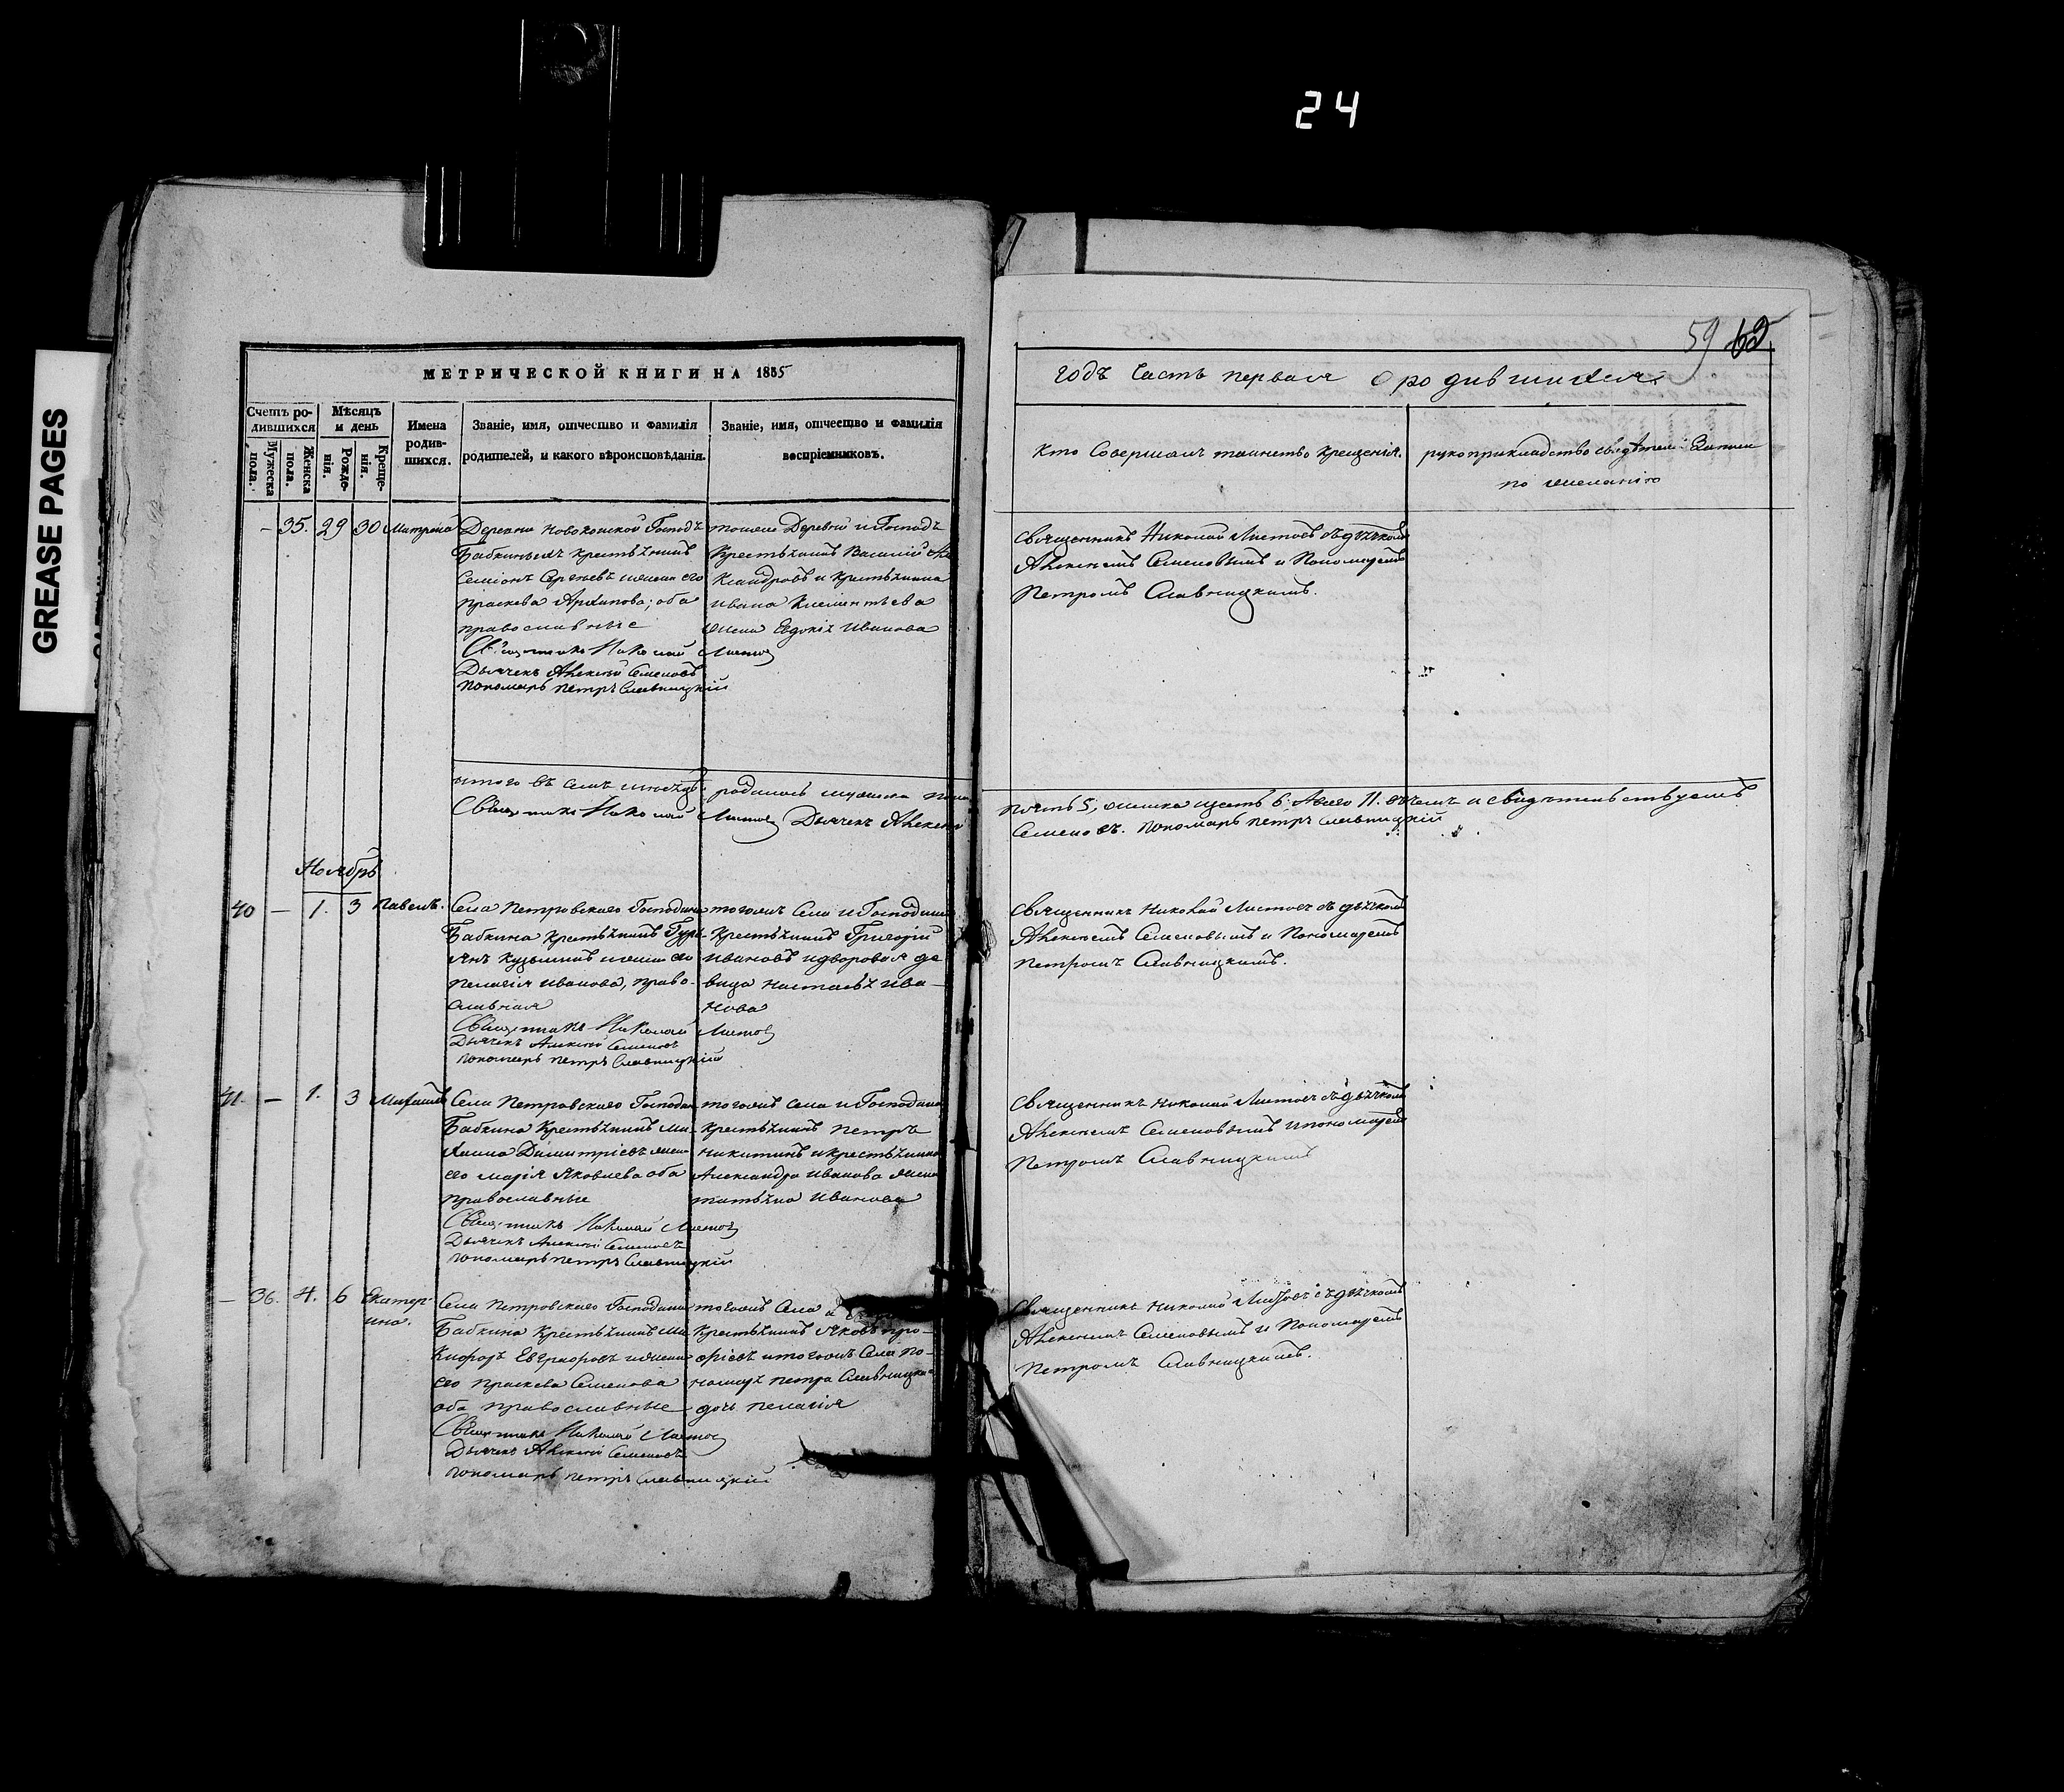 24
GREASE PAGES
59 62
МЕТРИЧЕСКОЙ КНИГИ НА 1835
годъ Часть первая О родившихся
Счетъ ро-
дившихся
Мужеска
пола.
Женска
пола.
Мѣсяцъ
и день
Рожде-
нія.
Креще-
нія.
Имена
родив-
шихся.
Званіе, имя, отчество и фамилія
родителей, и какого вѣроисповѣданія.
Званіе, имя, отчество и фамилія
воспріемниковъ.
Кто Совершалъ таинство крещенія.
рукоприкладство свидѣтелей Записи
по желанію
— 35. 29 30 Матрона
Деревни Новокошкой Господъ
Бабкиныхъ крестьянинъ
Семіонъ Сергѣевъ и жена его
Праскева Архипова; оба
православные
тояже Деревни и Господъ
Крестьянинъ Василій Але
ксандровъ и крестьянина
Ивана Клементьева
жена Евдокія Иванова
Николай Листовъ
Дьячекъ Алексѣй Семеновъ
пономарь петръ Славницкій
Священникъ Николай Листовъ съ дьячкомъ
Алексѣемъ Семеновымъ и Пономаремъ
Петромъ Славницкимъ.
итого въ семъ мѣсяцѣ родилось мужеска пола
пять 5, женска шесть 6. Всего 11. въ чемъ и свидѣтельствуемъ
Николай Листовъ Дьячекъ Алексѣй
Семеновъ. Пономарь петръ Славницкій
Ноябрь
40 — 1. 3 Павелъ.
Села Петровскаго Господина
Бабкина крестьянинъ Гурь-
янъ Кузьминъ и жена его
пелагія иванова, право-
славная
тогожъ Села и Господина
Крестьянинъ Григорій
Ивановъ и дворовая де
вица Настасья Ива-
нова
Николай Листовъ
Дьячекъ Алексѣй Семеновъ
пономарь петръ Славницкій
Священникъ Николай Листовъ съ дьячкомъ
Алексѣемъ Семеновымъ и Пономаремъ
петромъ Славницкимъ.
41. — 1. 3 Михаилъ
Села Петровскаго Господина
Бабкина Крестьянинъ Ми-
хаила Димитріевъ жена
его марія Яковлева оба
православные
тогожъ села и Господина
крестьянинъ петръ
никитинъ и крестьянина
Александра Иванова жена
татьяна Иванова
Николай Листовъ
Дьячекъ Алексѣй Семеновъ
пономарь петръ Славницкій
Священникъ Николай Листовъ съ дьячкомъ
Алексѣемъ Семеновымъ и пономаремъ
Петромъ Славницкимъ
— 36. 4. 6 Екатер-
ина.
Села Петровскаго Господина
Бабкина Крестьянинъ Ни-
кифоръ Евграфовъ и жена
его Праскева Семенова
оба православные
тогожъ Села и
Крестьянинъ Яковъ про-
фіевъ и тогожъ Села по-
номаря петра Славницка
дочь пелагія
Николай Листовъ
Дьячекъ Алексѣй Семеновъ
пономарь петръ Славницкій
Священникъ Николай Листовъ съ дьячкомъ
Алексѣемъ Семеновымъ и Пономаремъ
Петромъ Славницкимъ.